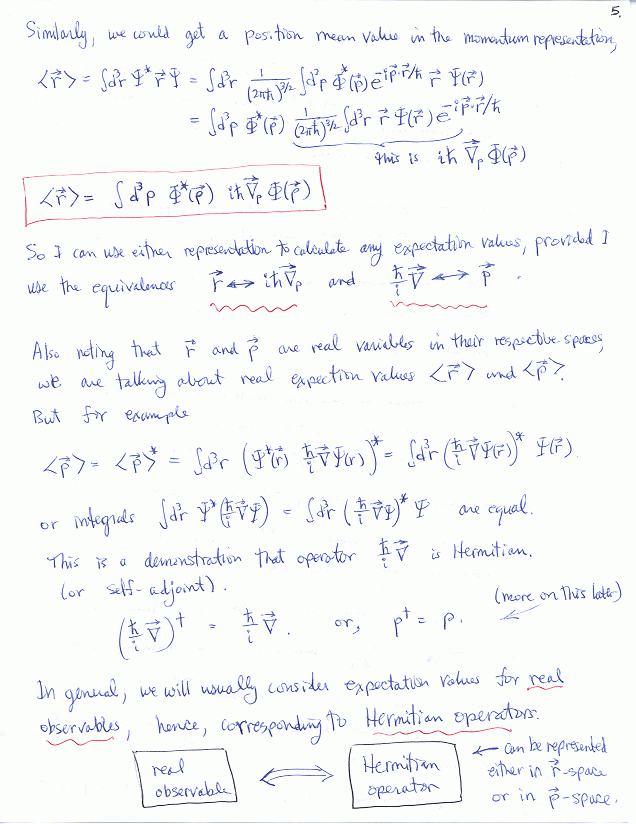 5.
Similarly, we could get a position mean value in the momentum representation,
⟨r⃗⟩ = ∫d³r Ψ* r⃗ Ψ = ∫d³r 1/(2πħ)^{3/2} ∫d³p Φ*(p⃗) e^{-ip⃗·r⃗/ħ} r⃗ Ψ(r⃗)
= ∫d³p Φ*(p⃗) 1/(2πħ)^{3/2} ∫d³r r⃗ Ψ(r⃗) e^{-ip⃗·r⃗/ħ}
this is iħ ∇⃗_p Φ(p⃗)
⟨r⃗⟩ = ∫d³p Φ*(p⃗) iħ∇⃗_p Φ(p⃗)
So I can use either representation to calculate any expectation values, provided I
use the equivalences r⃗ ↔ iħ∇⃗_p and ħ/i ∇⃗ ↔ p⃗ .
Also noting that r⃗ and p⃗ are real variables in their respective spaces,
we are talking about real expection values ⟨r⃗⟩ and ⟨p⃗⟩.
But for example
⟨p⃗⟩ = ⟨p⃗⟩* = ∫d³r (Ψ*(r⃗) ħ/i ∇⃗Ψ(r))* = ∫d³r (ħ/i ∇⃗Ψ(r⃗))* Ψ(r⃗).
or integrals ∫d³r Ψ*(ħ/i ∇⃗Ψ) = ∫d³r (ħ/i ∇⃗Ψ)* Ψ are equal.
This is a demonstration that operator ħ/i ∇⃗ is Hermitian.
(or self-adjoint).
(more on this later)
(ħ/i ∇⃗)† = ħ/i ∇⃗. or, p† = p.
In general, we will usually consider expectation values for real
observables, hence, corresponding to Hermitian operators.
real
observable
⟺
Hermitian
operator
← can be represented
either in r⃗-space
or in p⃗-space.